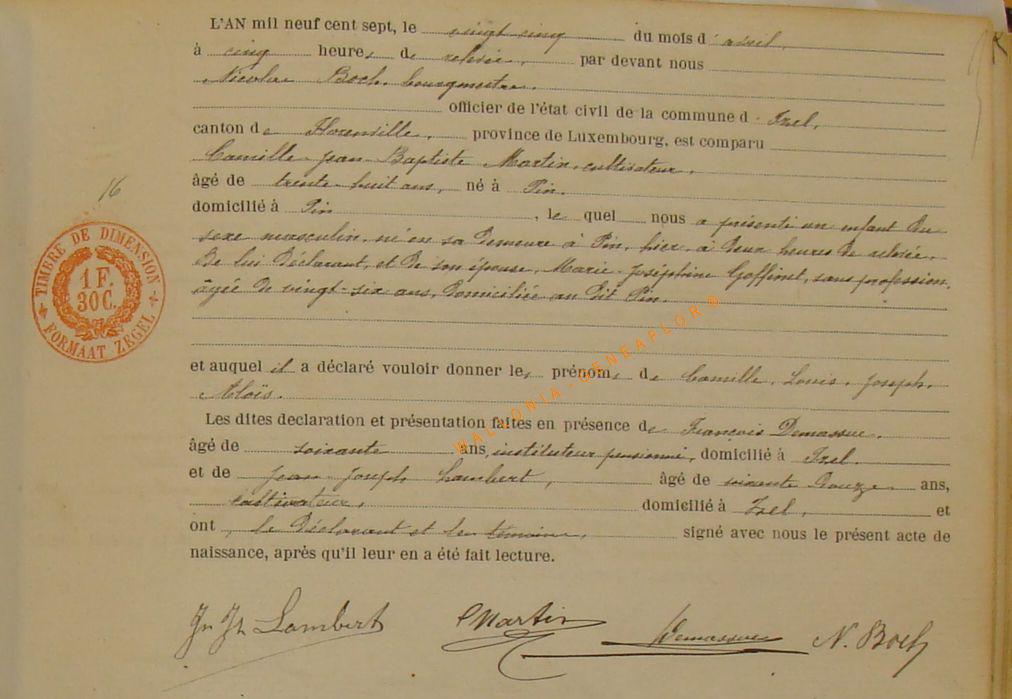 L'AN mil neuf cent sept, le vingt cinq du mois d'avril,
à cinq heures de relevée, par devant nous
Nicolas Boch, bourgmestre.
officier de l'état civil de la commune d'Izel,
canton de Florenville, province de Luxembourg, est comparu
Camille Jean Baptiste Martin, cultivateur,
âgé de trente huit ans, né à Pin.
domicilié à Pin, lequel nous a présenté un enfant du
sexe masculin, né en sa demeure à Pin, hier, à deux heures de relevée,
de lui déclarant, et de son épouse, Marie Joséphine Goffinet, sans profession,
âgée de vingt-six ans, domiciliée au dit Pin.
et auquel il a déclaré vouloir donner les prénoms de Camille, Louis, Joseph,
Aloïs.
Les dites declaration et présentation faites en présence de François Demasure,
âgé de soixante ans, instituteur pensionné, domicilié à Izel.
et de Jean Joseph Lambert, âgé de soixante douze ans,
cultivateur, domicilié à Izel, et
ont, le déclarant et les témoins, signé avec nous le présent acte de
naissance, après qu'il leur en a été fait lecture.
Jn Jh Lambert CMartin Demasure N. Boch
16
TIMBRE DE DIMENSION
1 F.
30 C.
FORMAAT ZEGEL
WALLONIA-GENEAFLORG